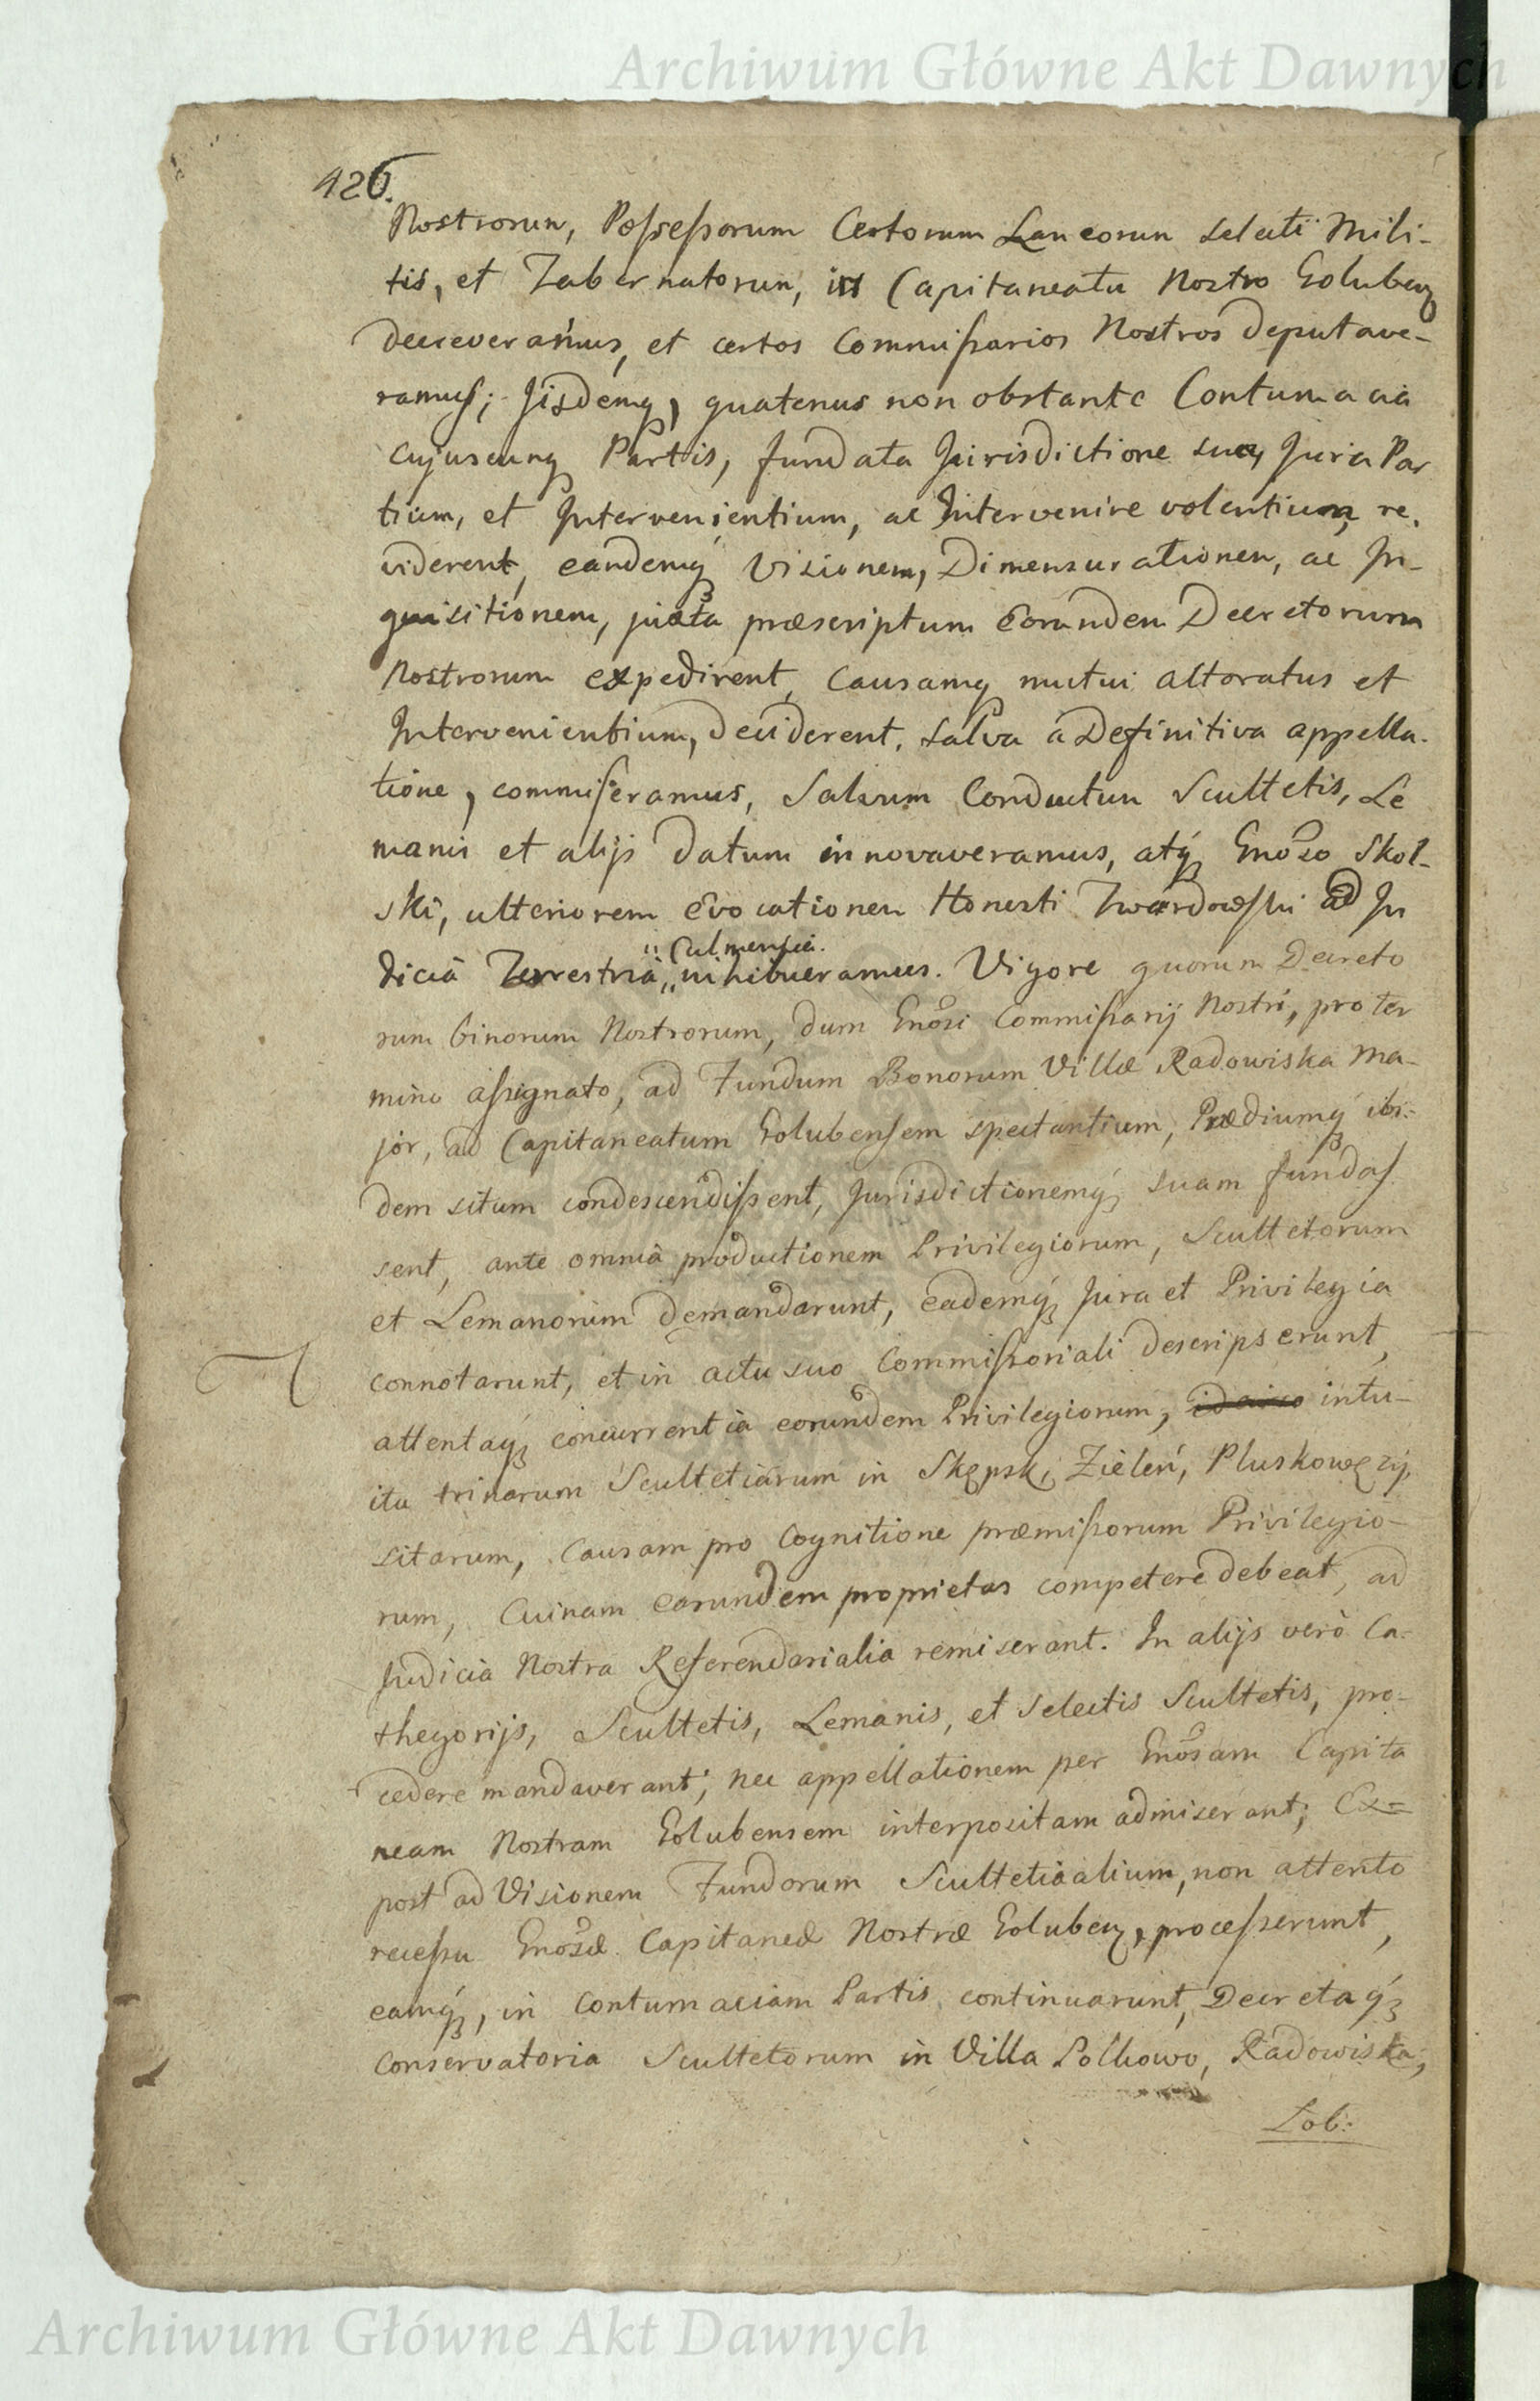 Archiwum Główne Akt Dawnych
426.
Nostrorum, Possessorum Certorum Laneorum selecti Mili-
tis, et Tabernatorum, in Capitaneatu Nostro Golubenq
decreveramus, et certos Commissarios Nostros deputave-
ramus; Jisdemq, quatenus non obstante Contumacia
cujuscunq Partis, fundata Jurisdictione sua, Jura Par
tium, et Intervenientium, ac Intervenire volentium, re.
viderent, eandemq Visionem, Dimensurationem, ac In-
quisitionem, juxta præscriptum Eorundem Decretorum
Nostrorum expedirent, Causamq mutui actoratus et
Intervenientium, deciderent. salva a Definitiva appella-
tione, commiseramus, Salvum Conductum Scultetis, Le
manis et alijs datum innovaveramus, atq Gnoso Skol-
ski, ulteriorem Evocationem Honesti Twardowski ad Ju
" Culmensia.
dicia Terrestria „ inhibueramus. Vigore quorum Decreto
rum binorum Nostrorum, dum Gnosi Commissarij Nostri, pro ter
mino assignato, ad Fundum Bonorum Villæ Radowiska Ma-
jor, ad Capitaneatum Golubensem spectantium, Prædiumq ibi-
dem situm condescendissent, Jurisdictionemq suam fundas
sent, ante omnia productionem Privilegiorum, Scultetorum
et Lemanorum demandarunt, eademq Jura et Privilegia
connotarunt, et in actu suo Commissoriali descripserunt,
attentaq concurrentia eorundem Privilegiorum, intu-
itu trinarum Scultetiarum in Skępsk, Zieleń, Pluskowęzÿ,
sitarum, Causam pro Cognitione præmissorum Privilegio-
rum, Cuinam earundem proprietas competere debeat, ad
Judicia Nostra Referendarialia remiserant. In alijs verò Ca-
thegorijs, Scultetis, Lemanis, et selectis Scultetis, pro-
cedere mandaverant; nec appellationem per Gnosam Capita
neam Nostram Golubensem interpositam admiserant; Ex=
post ad Visionem Fundorum Scultetialium, non attento
recessu Gnosæ Capitaneæ Nostræ Golubenq, processerunt,
eamq, in Contumaciam Partis continuarunt, Decretaq
Conservatoria Scultetorum in Villa Polkowo, Radowiska,
Lob:
Archiwum Główne Akt Dawnych